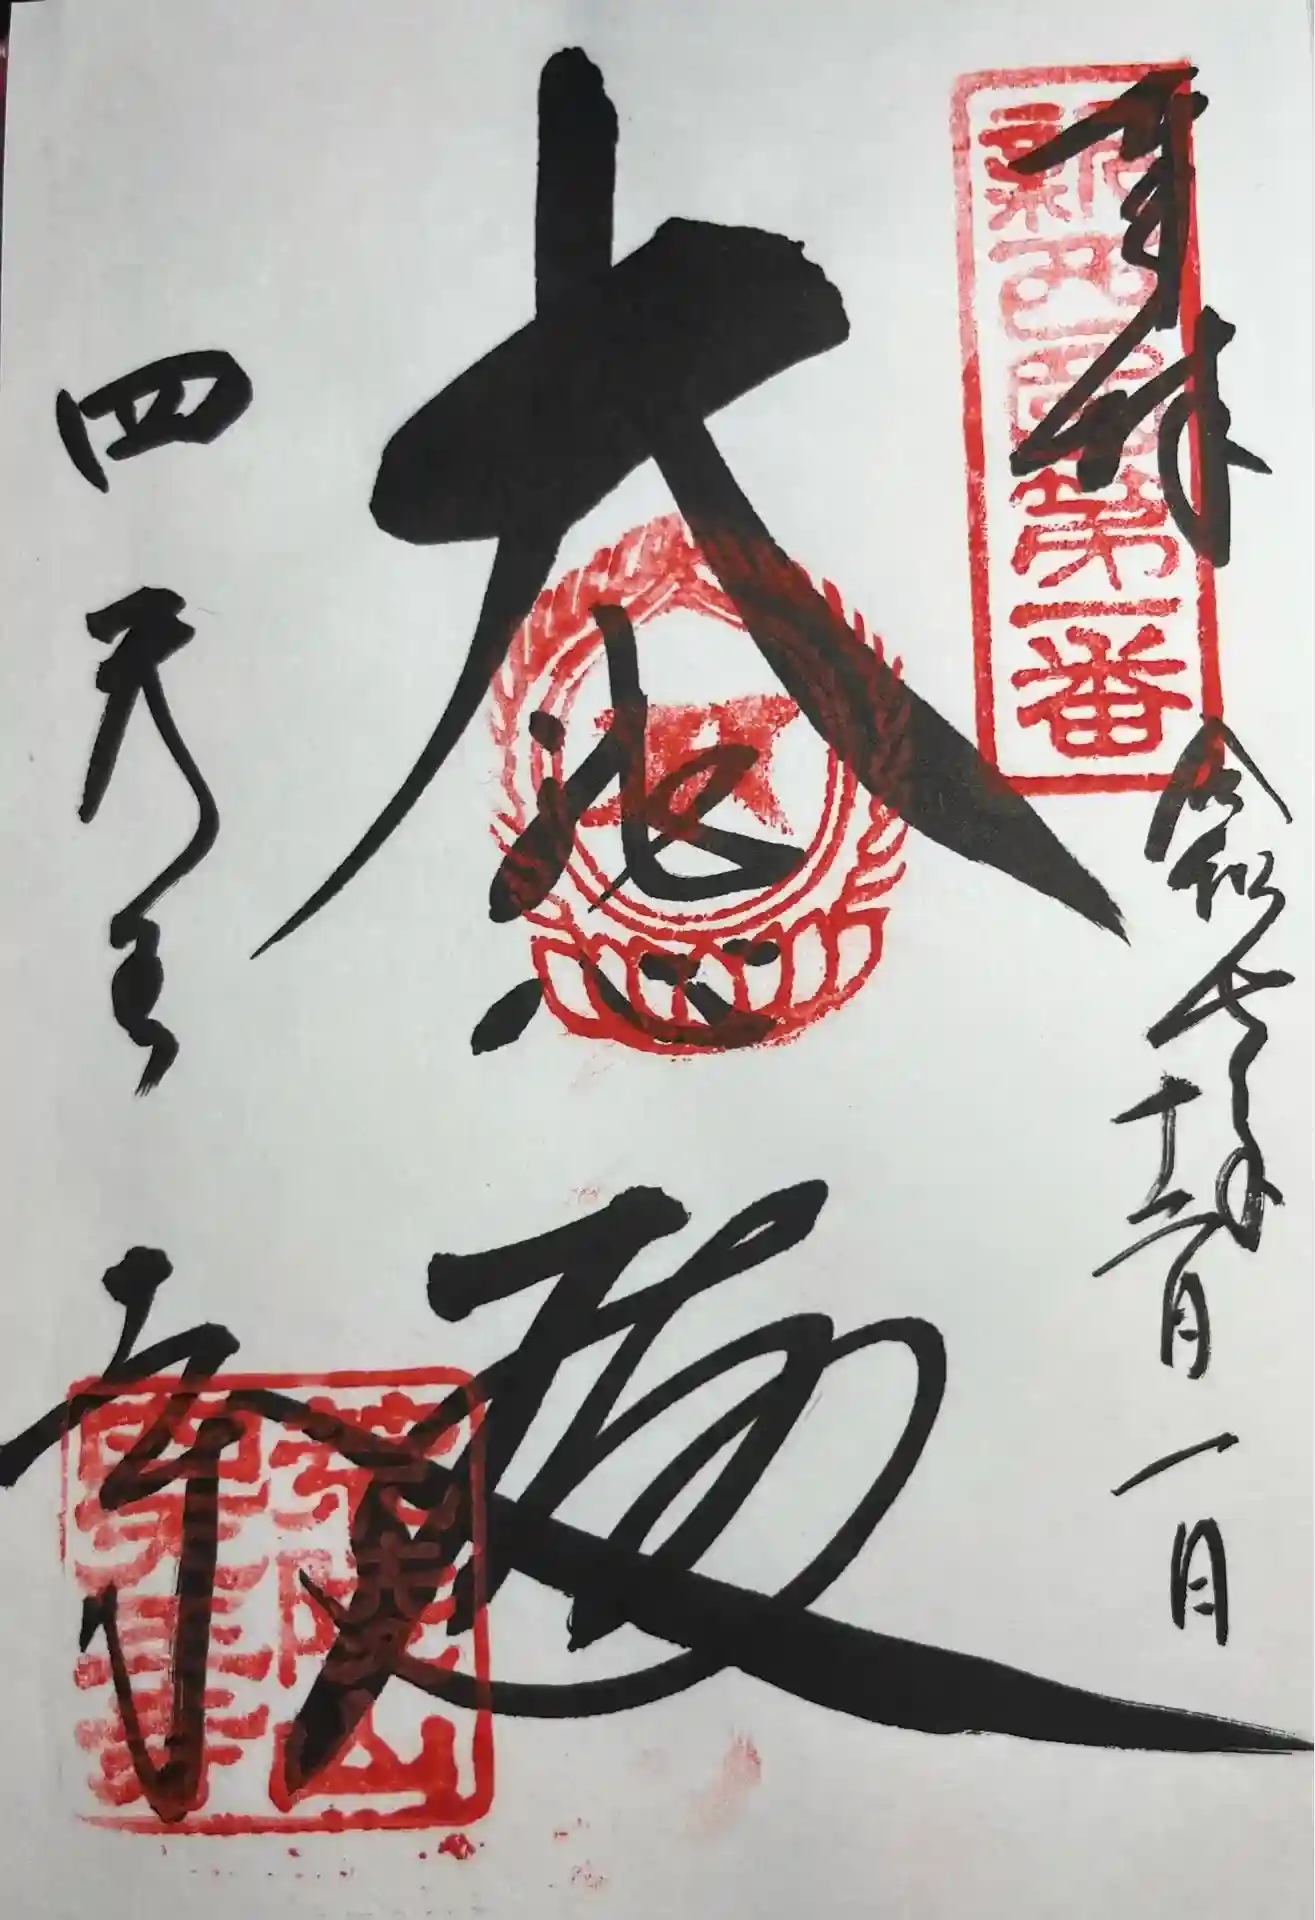 奉拝
新西国第一番
令和七年十二月一日
大悲殿
四天王寺
荒陵山
四天王寺